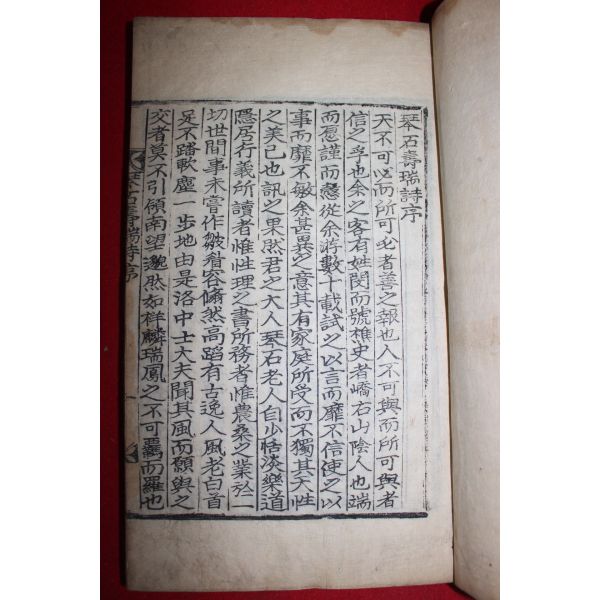 琴石壽瑞詩序
天不可必而所可必者善之報也人不可與而所可與者
信之孚也余之客有姓閔而號樵史者嶠右山陰人也端
而慤謹而懿從余將數十載試之以言而靡不信使之以
事而靡不敏余甚異之意其有家庭所受而不獨其天性
之美已也訊之果然君之大人琴石老人自少恬淡樂道
隱居行義所讀者惟性理之書所務者惟農桑之業於一
切世間事未嘗作皺眉容翛然高蹈有古逸人風老白首
足不踏軟塵一步地由是洛中士大夫聞其風而願與之
交者莫不引領南望邈然如祥麟瑞鳳之不可羈而羅也
琴石壽瑞詩序
一